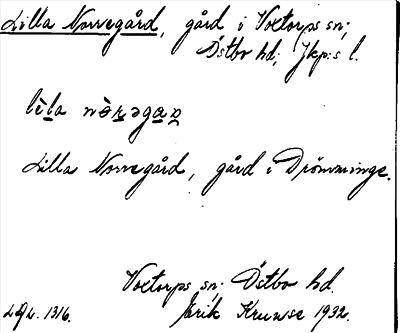 Lilla Norregård, gård i Voetorps sn;
Östbo hd; Jkp:s l.
lìla nòrəgaṇ
Lilla Norregård, gård i Drömminge.
Voetorps sn; Östbo hd.
L.G.L. 1316. Erik Krunse 1932.